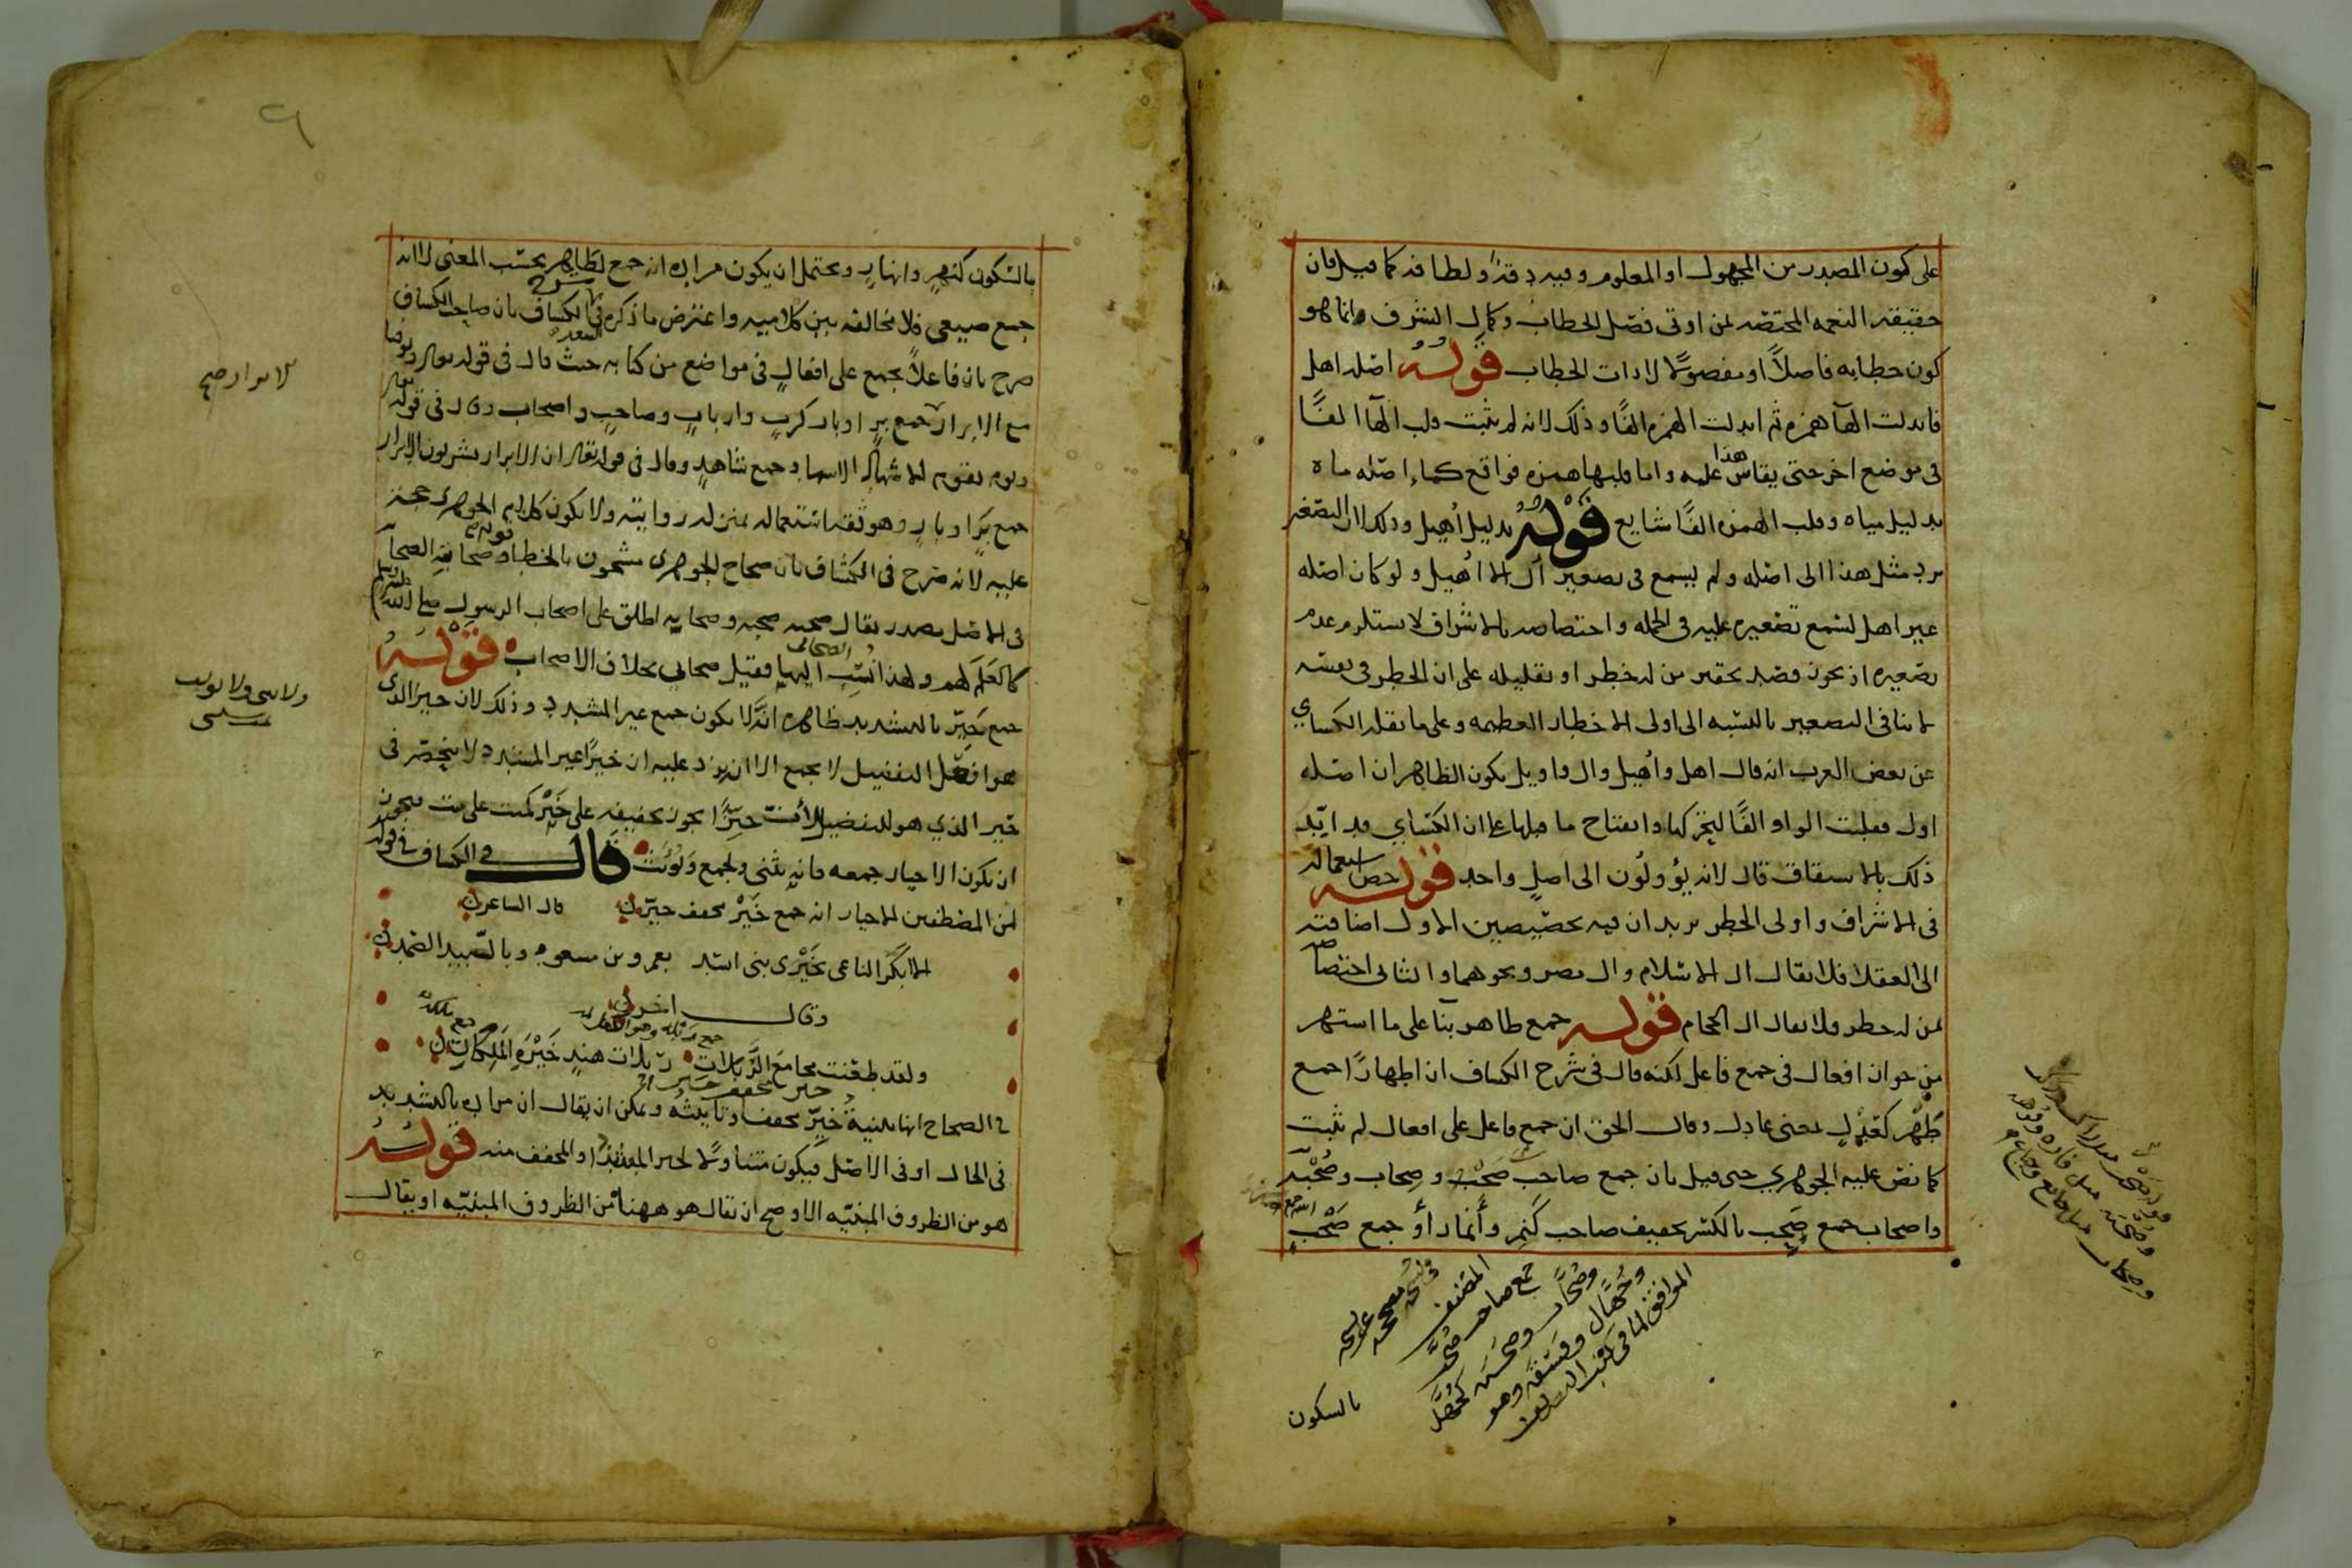 على كون المصدر من المجهول او المعلوم وفيه دقة ولطافة كما قيل فان
حقيقته النعمه المختصه لمن اوتى فصل الخطاب وكمال الشرف وانما هو
كون خطابه فاصلاً او مفصولاً لا ذات الخطاب قوله اصله اهل
فابدلت الهآ همزه ثم ابدلت الهمزه الفًا وذلك لانه لم يثبت قلب الهآ الفًا
فى موضع اخر حتى يقاس هذا عليه واما قلبها همزه فواقع كماء اصله ماه
بدليل مياه وقلب الهمزه الفًا شايع قوله بدليل أهيل وذلك لان التصغير
يرد مثل هذا الى اصله ولم يسمع فى تصغير آل الا اُهيل ولو كان اصله
غير اهل لسمع تصغيره عليه فى الجمله واختصاصه بالاشراف لا يستلزم عدم
تصغيره اذ يجوز قصد تحقير من له خطر او تقليله على ان الخطر فى نفسه
لا ينافى التصغير بالنسبه الى اولى الاخطار العظيمه وعلى ما نقله الكساي
عن بعض العرب انه قال اهل واُهيل وال واويل يكون الظاهر ان اصله
اول فقلبت الواو الفًا لتحركها وانفتاح ما قبلها على ان الكساي قد ايّد
ذلك بالاشتقاق قال لانه يؤولُون الى اصلٍ واحد قوله خص استعماله
فى الاشراف واولى الخطر يريد ان فيه تخصيصين الاول اضافته
الى العقلا فلا يقال ال الاسلام وال مصر ونحوهما والثانى اختصاصه
لمن له خطر فلا يقال ال الحجام قوله جمع طاهر بنآ على ما اشتهر
من جواز افعال فى جمع فاعل لكنه قال فى شرح الكشاف ان اطهارًا جمع
طَهْر كعَدْلٍ بمعنى عادل وقال الحق ان جمع فاعل على افعال لم يثبت
كما نص عليه الجوهري حتى قيل بان جمع صاحب صَحْب وصِحاب وصُحْبَه
واصحاب جمع صَحِب بالكسر تخفيف صاحب كنَمِر وأَنمار أو جمع صَحْبٍ
المصنف
جمع صاحب
وجُهَّال وفسَقَة وهو
الموافق لما فى كتب
بالسكون
بالسكون كنهرٍ وانهارٍ ويحتمل ان يكون مراده انه جمع لطاهر بحسب المعنى لا انه
جمع صيغى فلا مخالفه بين كلاميه واعترض ما ذكره السعد فى شرح الكشاف بان صاحب الكشاف
صرح بان فاعلاً يجمع على افعالٍ فى مواضع من كتابه حيث قال فى قوله تعالى وتوفنا
مع الابرار جمع برٍ او بار كربٍ واربابٍ وصاحبٍ واصحاب وقال فى قوله تعالى
ويوم يقوم الاشهاد الاشهاد جمع شاهدٍ وقال فى قوله تعالى ان الابرار يشربون الابرار
جمع برٍ او بارٍ وهو ثقه استعماله بمنزله روايته ولا يكون كلام الجوهرى حجه
عليه لانه صرح فى الكشاف بان صحاح الجوهرى مشحون بالخطا قوله وصحابته الصحابه
فى الاصل مصدر يقال صحبه صحبه وصحابه اطلق على اصحاب الرسول صلى الله عليه وسلم
كالعلم لهم ولهذا نُسِب الصحابى اليها فقيل صحابي بخلاف الاصحاب قوله
جمع خَيّر بالتشديد ظاهره انَّه لا يكون جمع غير المشدد وذلك لان خير الذى
هو افعل التفضيل لا يجمع الا ان يرد عليه ان خيرًا غير المشدد لا ينحصر فى
خير الذي هو للتفضيل لان خيّرًا يجوز تخفيفه على خَيْر كميت على ميت فيجوز
ان يكون الاخيار جمعه فانه يثنى ويجمع ويؤنث قال فى الكشاف فى قوله
لمن المصطفين الاخيار انه جمع خَيْر مخفف خيّر قال الشاعر
الا بكَّر الناعى بخَيْرَى بنى اسَد بعمرو بن مسعود وبالسّيد الصّمد
وقال اخر
ولقد طعَنت مجامعَ الرَّبَلاتِ رَبَلات هندٍ خَيْرَةِ المَلِكاتِ
فى الصحاح انها تثنيةُ خَيّر مخفف وتانيثُه ويمكن ان يقال ان مراده بالتشديد
فى الحال او فى الاصل فيكون متناولاً لخير المشدّد والمخفف منه قوله
هو من الظروف المبنيّه الاوضح ان يقال هو ههنا من الظروف المبنيّه او يقال